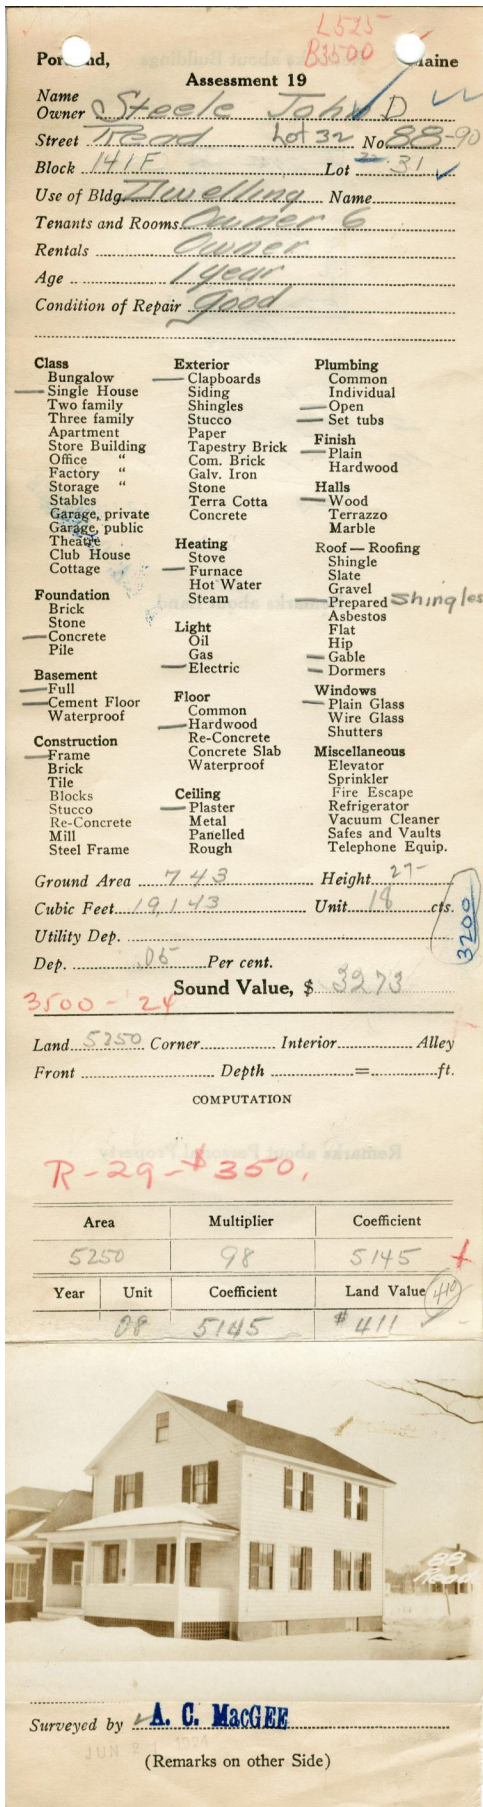 L525
B3500
Portland, Maine
Assessment 19
Name
Owner Steele John D
Street Read Lot 32 No 88-90
Block 141F Lot 31
Use of Bldg. Dwelling Name
Tenants and Rooms Owner 6
Rentals Owner
Age 1 year
Condition of Repair good
Class
Bungalow
Single House
Two family
Three family
Apartment
Store Building
Office "
Factory "
Storage "
Stables
Garage, private
Garage, public
Theatre
Club House
Cottage
Foundation
Brick
Stone
Concrete
Pile
Basement
Full
Cement Floor
Waterproof
Construction
Frame
Brick
Tile
Blocks
Stucco
Re-Concrete
Mill
Steel Frame
Exterior
Clapboards
Siding
Shingles
Stucco
Paper
Tapestry Brick
Com. Brick
Galv. Iron
Stone
Terra Cotta
Concrete
Heating
Stove
Furnace
Hot Water
Steam
Light
Oil
Gas
Electric
Floor
Common
Hardwood
Re-Concrete
Concrete Slab
Waterproof
Ceiling
Plaster
Metal
Panelled
Rough
Plumbing
Common
Individual
Open
Set tubs
Finish
Plain
Hardwood
Halls
Wood
Terrazzo
Marble
Roof — Roofing
Shingle
Slate
Gravel
Prepared Shingles
Asbestos
Flat
Hip
Gable
Dormers
Windows
Plain Glass
Wire Glass
Shutters
Miscellaneous
Elevator
Sprinkler
Fire Escape
Refrigerator
Vacuum Cleaner
Safes and Vaults
Telephone Equip.
Ground Area 743 Height 27-
Cubic Feet 19,143 Unit 18 cts.
3200
Utility Dep.
Dep. .05 Per cent.
Sound Value, $ 3273
3500-24
Land 5250 Corner Interior Alley
Front Depth = ft.
COMPUTATION
R-29-$350.
Area Multiplier Coefficient
5250 98 5145
Year Unit Coefficient Land Value 410
08 5145 $411
88
Read
Surveyed by A. C. MacGEE
(Remarks on other Side)